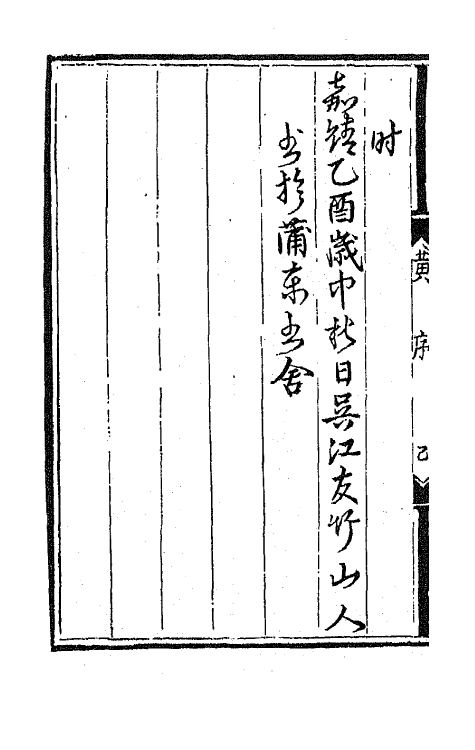 时
嘉靖乙酉歲中秋日吴江友竹山人
书於蒲東书舍
黄序